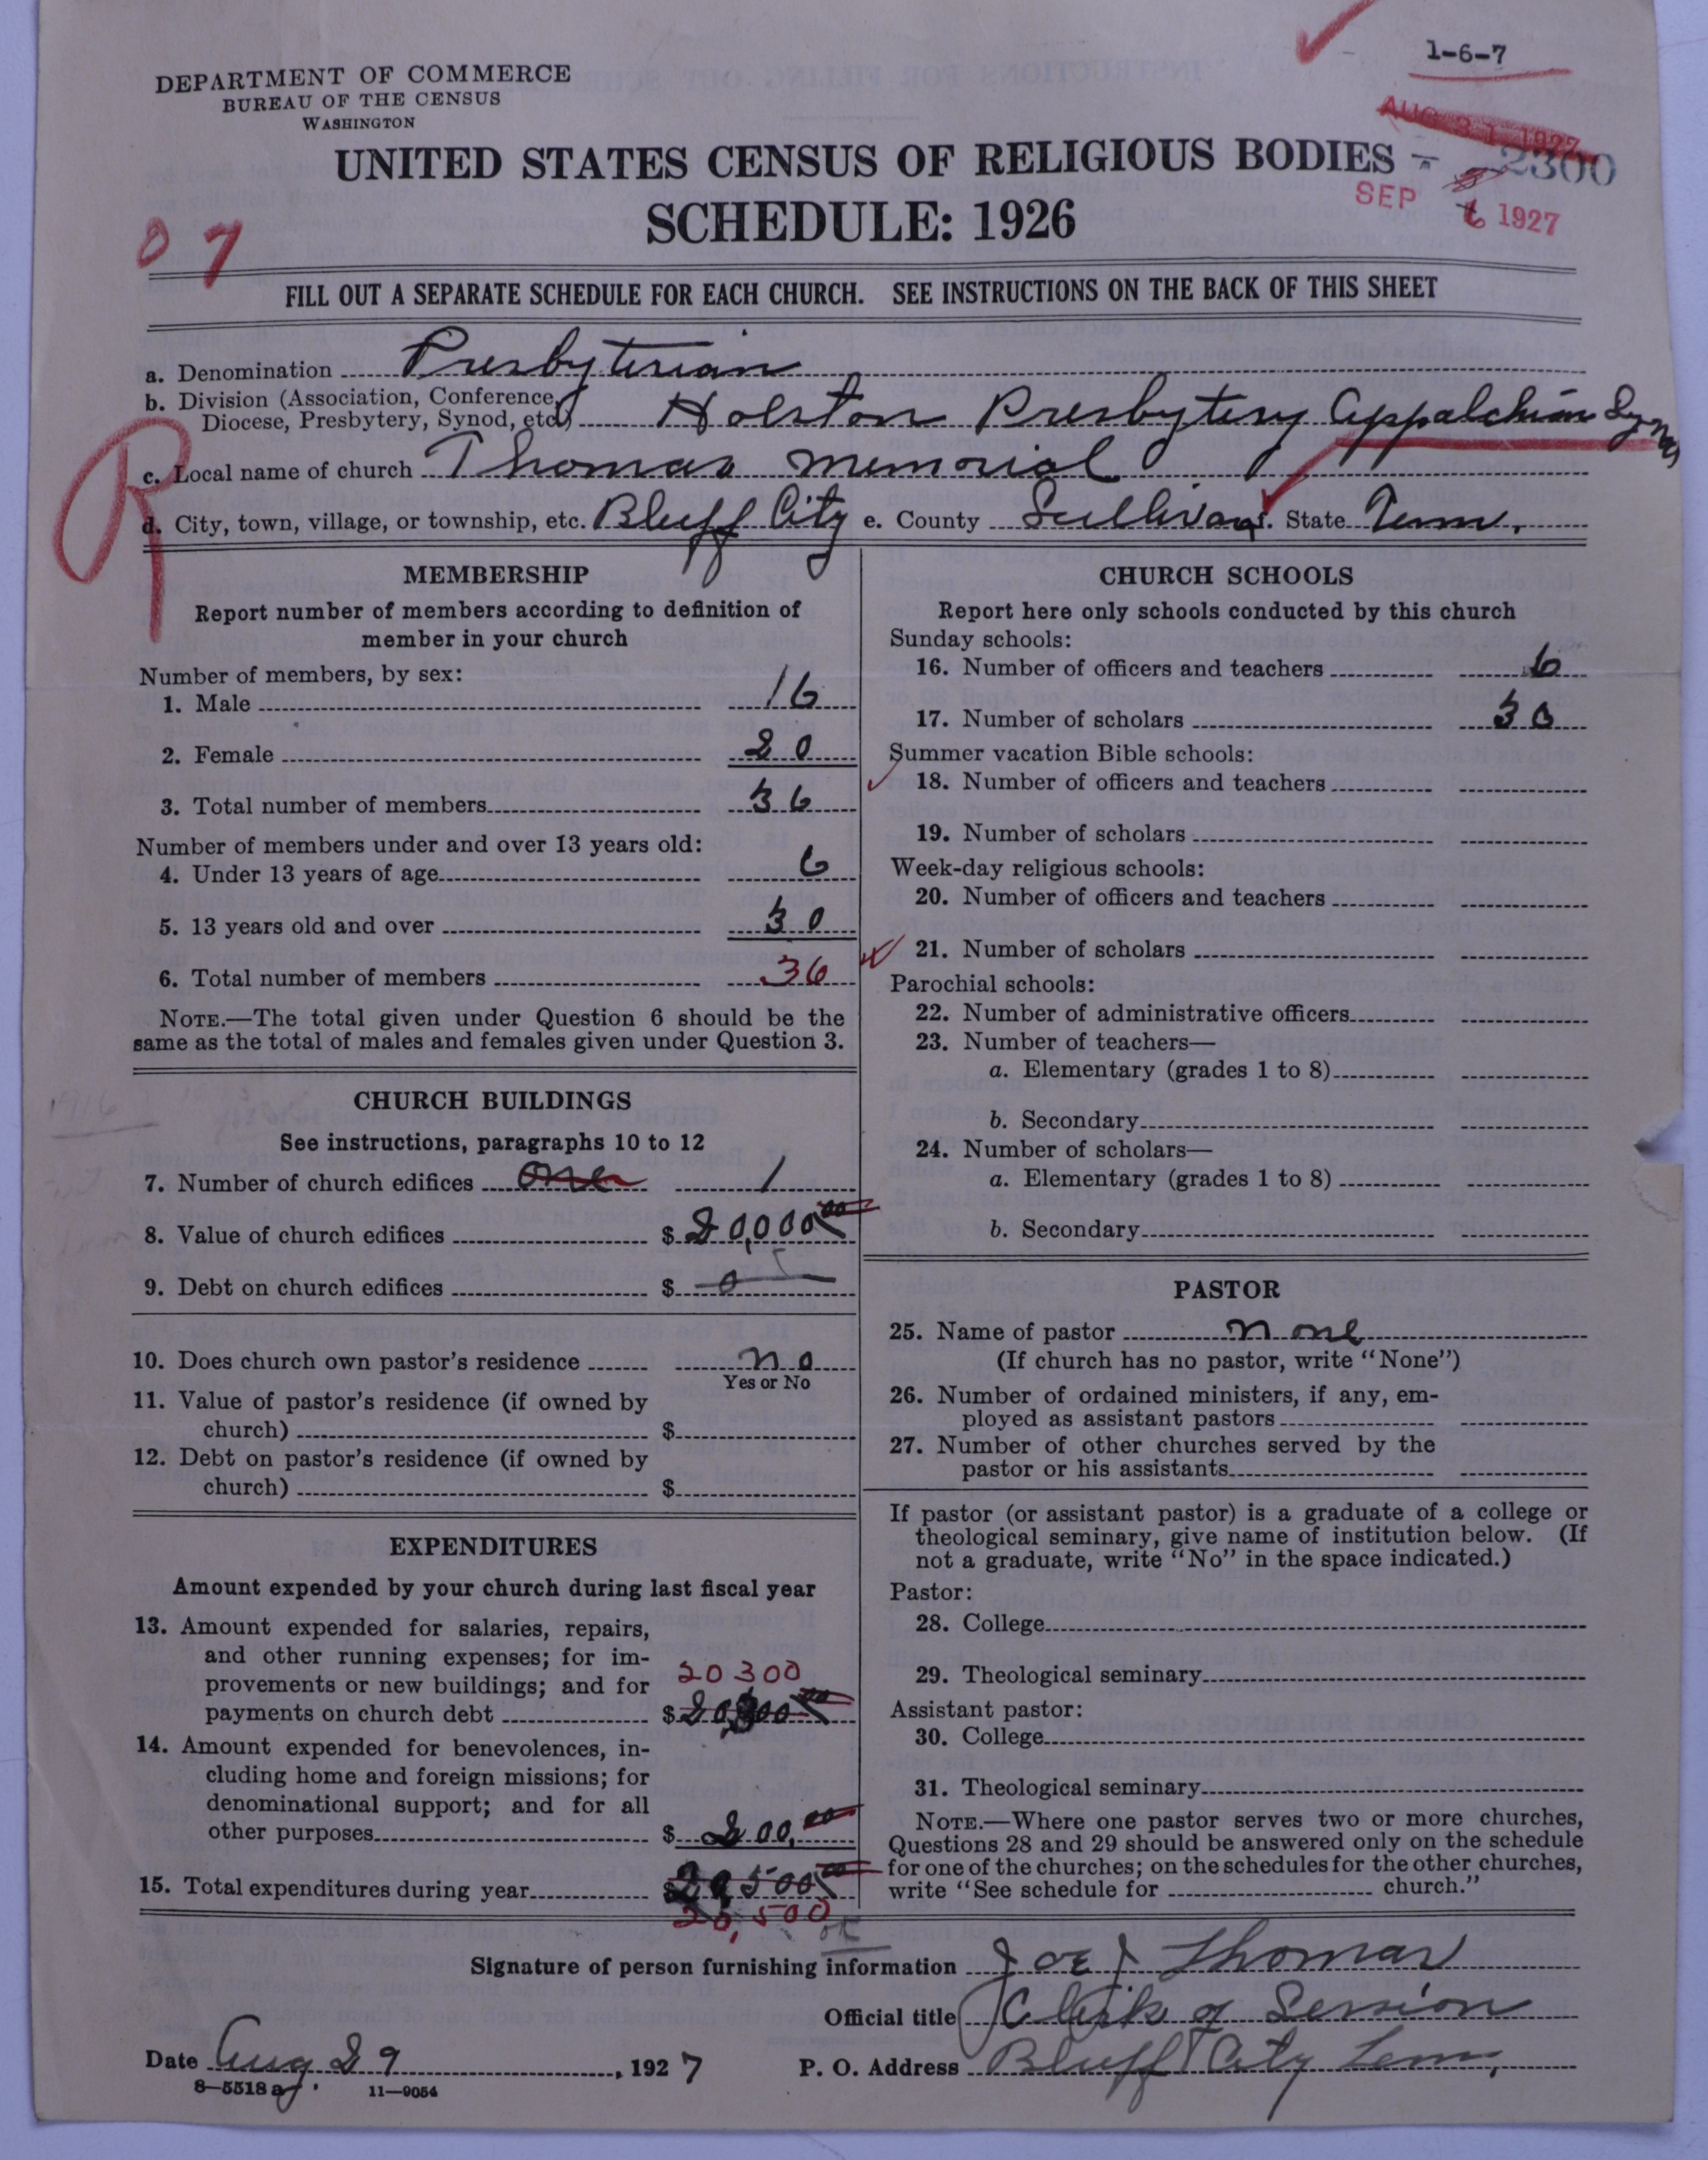 1-6-7
DEPARTMENT OF COMMERCE
BUREAU OF THE CENSUS
WASHINGTON
AUG 31 1927
UNITED STATES CENSUS OF RELIGIOUS BODIES
2300
SEP 6 1927
SCHEDULE: 1926
07
FILL OUT A SEPARATE SCHEDULE FOR EACH CHURCH. SEE INSTRUCTIONS ON THE BACK OF THIS SHEET
a. Denomination Presbyterian
b. Division (Association, Conference,
Diocese, Presbytery, Synod, etc.) Holston Presbytery Appalchian Synod
R
c. Local name of church Thomas memorial
d. City, town, village, or township, etc. Bluff City e. County Sullivan f. State Tenn.
MEMBERSHIP
Report number of members according to definition of
member in your church
Number of members, by sex:
1. Male 16
2. Female 20
3. Total number of members 36
Number of members under and over 13 years old:
4. Under 13 years of age 6
5. 13 years old and over 30
6. Total number of members 36
NOTE.—The total given under Question 6 should be the
same as the total of males and females given under Question 3.
1916
CHURCH BUILDINGS
See instructions, paragraphs 10 to 12
7. Number of church edifices one 1
8. Value of church edifices $ 20,000 00
9. Debt on church edifices $ 0
10. Does church own pastor's residence no
Yes or No
11. Value of pastor's residence (if owned by
church) $
12. Debt on pastor's residence (if owned by
church) $
EXPENDITURES
Amount expended by your church during last fiscal year
13. Amount expended for salaries, repairs,
and other running expenses; for im-
provements or new buildings; and for 20300
payments on church debt $ 20,300 00
14. Amount expended for benevolences, in-
cluding home and foreign missions; for
denominational support; and for all
other purposes $ 200.00
15. Total expenditures during year $ 20,500 00
20,500
ok
CHURCH SCHOOLS
Report here only schools conducted by this church
Sunday schools:
16. Number of officers and teachers 6
17. Number of scholars 30
Summer vacation Bible schools:
18. Number of officers and teachers
19. Number of scholars
Week-day religious schools:
20. Number of officers and teachers
21. Number of scholars
Parochial schools:
22. Number of administrative officers
23. Number of teachers—
a. Elementary (grades 1 to 8)
b. Secondary
24. Number of scholars—
a. Elementary (grades 1 to 8)
b. Secondary
PASTOR
25. Name of pastor none
(If church has no pastor, write "None")
26. Number of ordained ministers, if any, em-
ployed as assistant pastors
27. Number of other churches served by the
pastor or his assistants
If pastor (or assistant pastor) is a graduate of a college or
theological seminary, give name of institution below. (If
not a graduate, write "No" in the space indicated.)
Pastor:
28. College
29. Theological seminary
Assistant pastor:
30. College
31. Theological seminary
NOTE.—Where one pastor serves two or more churches,
Questions 28 and 29 should be answered only on the schedule
for one of the churches; on the schedules for the other churches,
write "See schedule for church."
Signature of person furnishing information Joe J Thomas
Official title Clerk of Session
Date Aug 29, 1927 P. O. Address Bluff City Tenn,
8—5518 a 11—9054